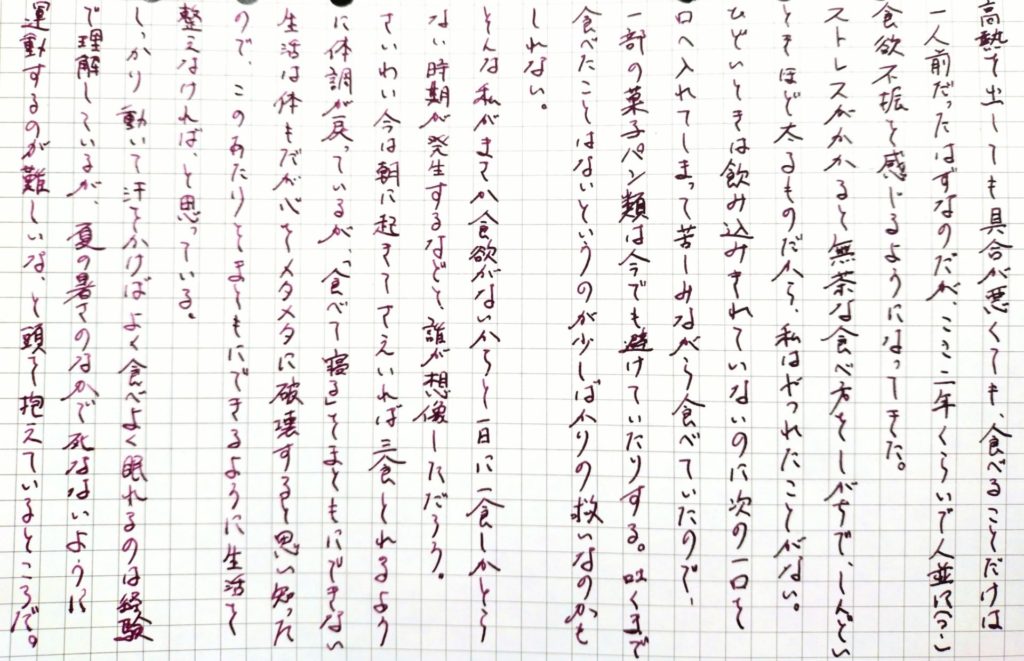 高熱を出しても具合が悪くても、食べることだけは
一人前だったはずなのだが、ここ二年くらいで人並に(?)
食欲不振を感じるようになってきた。
ストレスがかかると無茶な食べ方をしがちで、しんどい
ときほど太るものだから、私はやつれたことがない。
ひどいときは飲み込みきれていないのに次の一口を
口へ入れてしまって苦しみながら食べていたので、
一部の菓子パン類は今でも避けていたりする。吐くまで
食べたことはないというのが少しばかりの救いなのかも
しれない。
そんな私がまさか食欲がないからと一日に一食しかとら
ない時期が発生するなどと、誰が想像しただろう。
さいわい今は朝に起きてさえいれば三食とれるよう
に体調が戻っているが、「食べて寝る」をまともにできない
生活は体もだが心をメタメタに破壊すると思い知った
ので、このあたりをまともにできるように生活を
整えなければ、と思っている。
しっかり動いて汗をかけばよく食べよく眠れるのは経験
で理解しているが、夏の暑さのなかで死なないように
運動するのが難しいな、と頭を抱えているところだ。